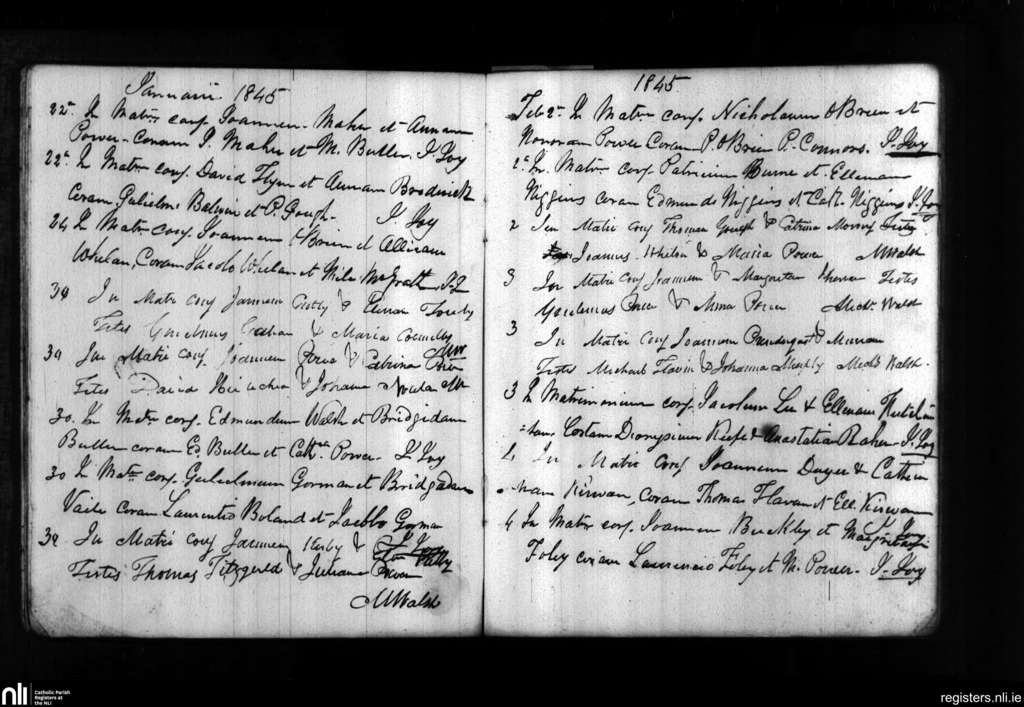 Januarii 1845
22a In Matr. conj. Joannem Maher et Annam
Power - Coram J. Maher et M. Butler. J. Joy
22a In Matr. conj. David Flynn et Annam Broderick
Coram Gulielmo Baldwin et P. Gough. J. Joy
24 In Matr. conj. Joannem O'Brien et Alliciam
Whelan, Coram Jacobo Whelan et McGrath. J. J.
30 In Matr conj Jannem &
Testes & Maria Connelly
30 In Matri conj Joannem & Catrina
Testes David & Johanna
30. In Mat. conj. Edmundum Walsh et Bridgidam
Butler coram Ed Butler et Cath. Power. J. Joy
30 In Mat. conj. Gulielmum Gorman et Bridgidam
Coram Laurentio Boland et Jacobo Gorman
30 In Matri conj Jannem &
Testes Thomas Fitzgerald & Juliana
M Walsh
1845
Feb 2a In Matr. conj. Nicholaum O'Brien et
Honoram Power Coram P. O'Brien P. Connors. J. Joy
2a In Matr. conj. Patricium Burne et Ellenam
Higgins coram Edmundo Higgins et Cath. Higgins J. Joy
2 In Matri conj Thomam Gough & Catrina Testes
Joannes Whelan & Maria Power M Walsh
3 In Matri conj Joannem & Margretam Testes
Gulielmus & Anna Power Mich. Walsh
3 In Matri conj Joannem Prendergast &
Testes Michael Flavin & Johanna Michl Walsh
3 In Matrimonium conj. Jacobum Lee & Ellenam
Coram Dionysium Keefe & Anastatia Maher - J. Joy
4 In Matri Conj Joannem Dwyer & Cathrin
Kirwan, Coram Thoma Flavan et Ell. Kirwan
4 In Matr. conj. Joannem Buckley et
Foley coram Laurencio Foley et M. Power. J. Joy
nli
Catholic Parish
Registers at
the NLI
registers.nli.ie